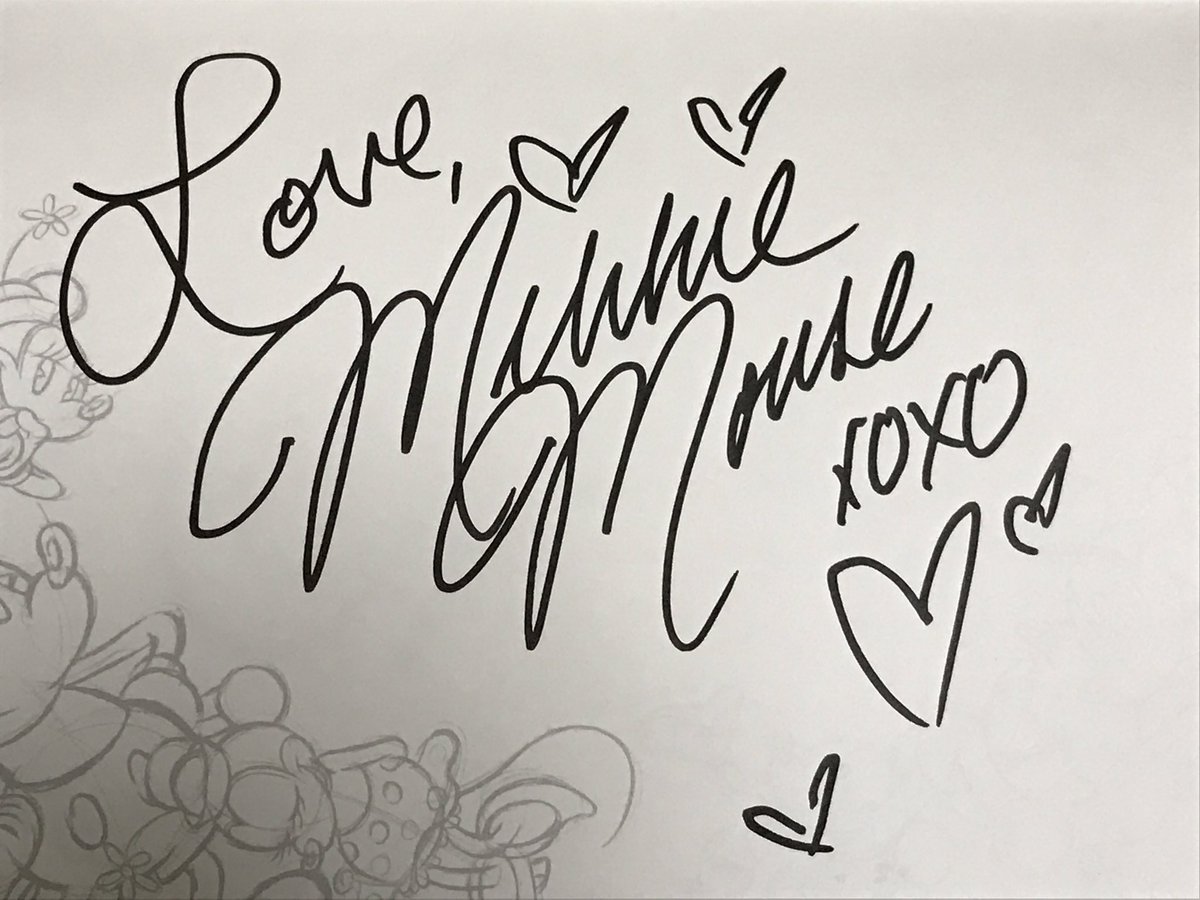 Love,
Minnie
Mouse
xoxo